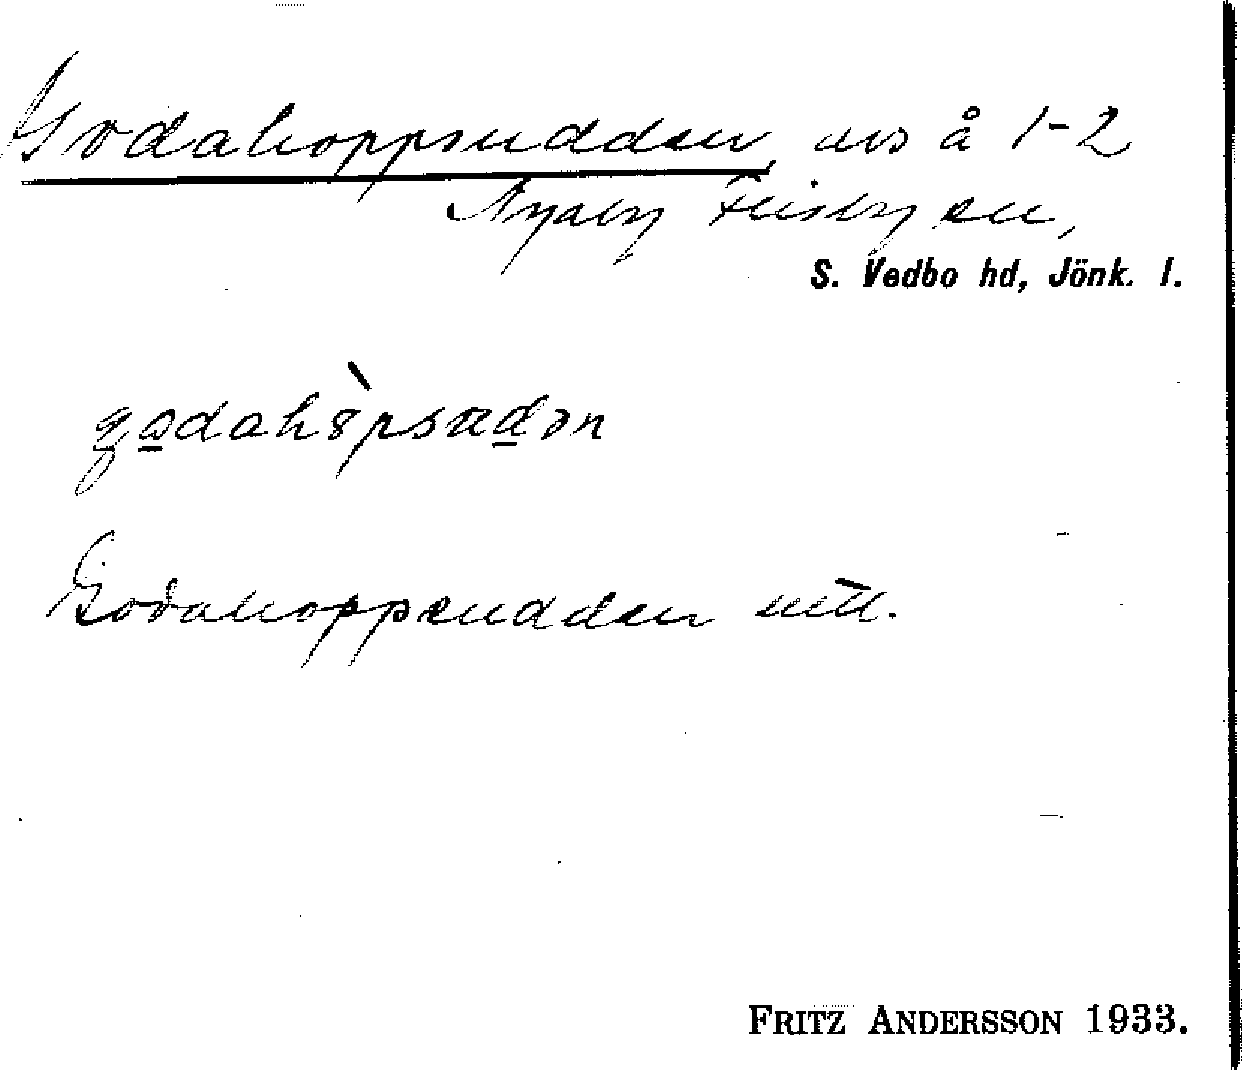 Godahoppsudden, uos å 1-2
Nyaby Flisby sn,
S. Vedbo hd, Jönk. l.
godahòpsuden
Godahoppsudden utt.
FRITZ ANDERSSON 1933.